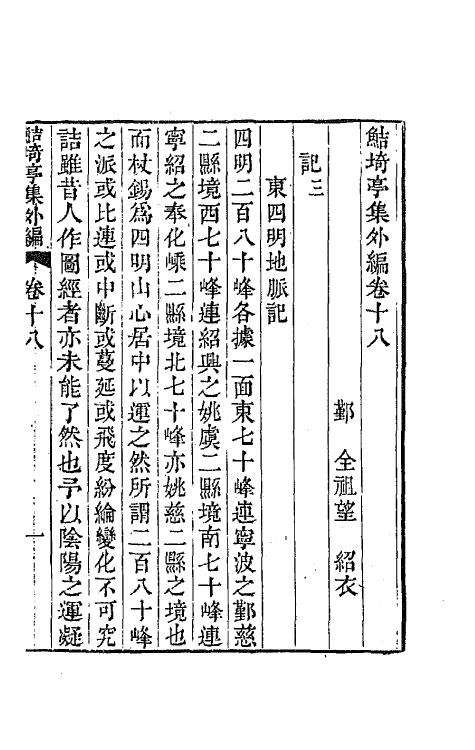 鮚埼亭集外編卷十八
鄞　全祖望　紹衣
記三
東四明地脈記
四明二百八十峰各據一面東七十峰連寧波之鄞慈
二縣境西七十峰連紹興之姚虞二縣境南七十峰連
寧紹之奉化嵊二縣境北七十峰亦姚慈二縣之境也
而杖錫爲四明山心居中以運之然所謂二百八十峰
之派或比連或中斷或蔓延或飛度紛綸變化不可究
詰雖昔人作圖經者亦未能了然也予以陰陽之運凝
鮚埼亭集外編　卷十八　一